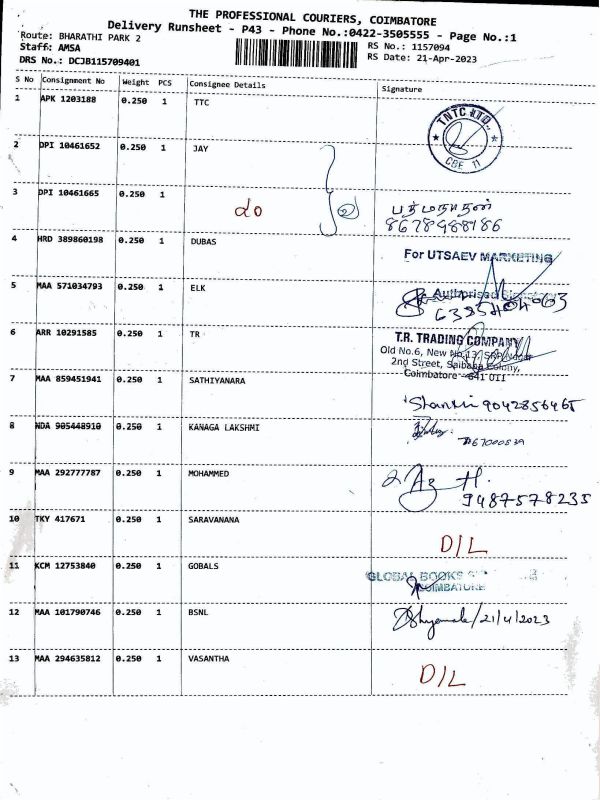 THE PROFESSIONAL COURIERS, COIMBATORE
Delivery Runsheet - P43 - Phone No.:0422-3505555 - Page No.:1
Route: BHARATHI PARK 2
RS No.: 1157094
Staff: AMSA
RS Date: 21-Apr-2023
DRS No.: DCJB115709401
S No Consignment No Weight PCS Consignee Details Signature
1 APK 1203188 0.250 1 TTC
TNTC LTD.,
CBE 11
2 DPI 10461652 0.250 1 JAY
3 DPI 10461665 0.250 1
பத்மநாதன்
8678988186
4 HRD 389860198 0.250 1 DUBAS
For UTSAEV MARKETING
5 MAA 571034793 0.250 1 ELK
Authorised
6 ARR 10291585 0.250 1 TR
T.R. TRADING COMPANY
Old No.6, New No.13, SRP Nagar
2nd Street, Saibaba Colony,
Coimbatore - 641 011
7 MAA 859451941 0.250 1 SATHIYANARA
9042856465
8 NDA 905448910 0.250 1 KANAGA LAKSHMI
9 MAA 292777787 0.250 1 MOHAMMED
9487578235
10 TKY 417671 0.250 1 SARAVANANA
D/L
11 KCM 12753840 0.250 1 GOBALS
GLOBAL BOOKS
COIMBATORE
12 MAA 101790746 0.250 1 BSNL
Shyamala/21/4/2023
13 MAA 294635812 0.250 1 VASANTHA
D/L